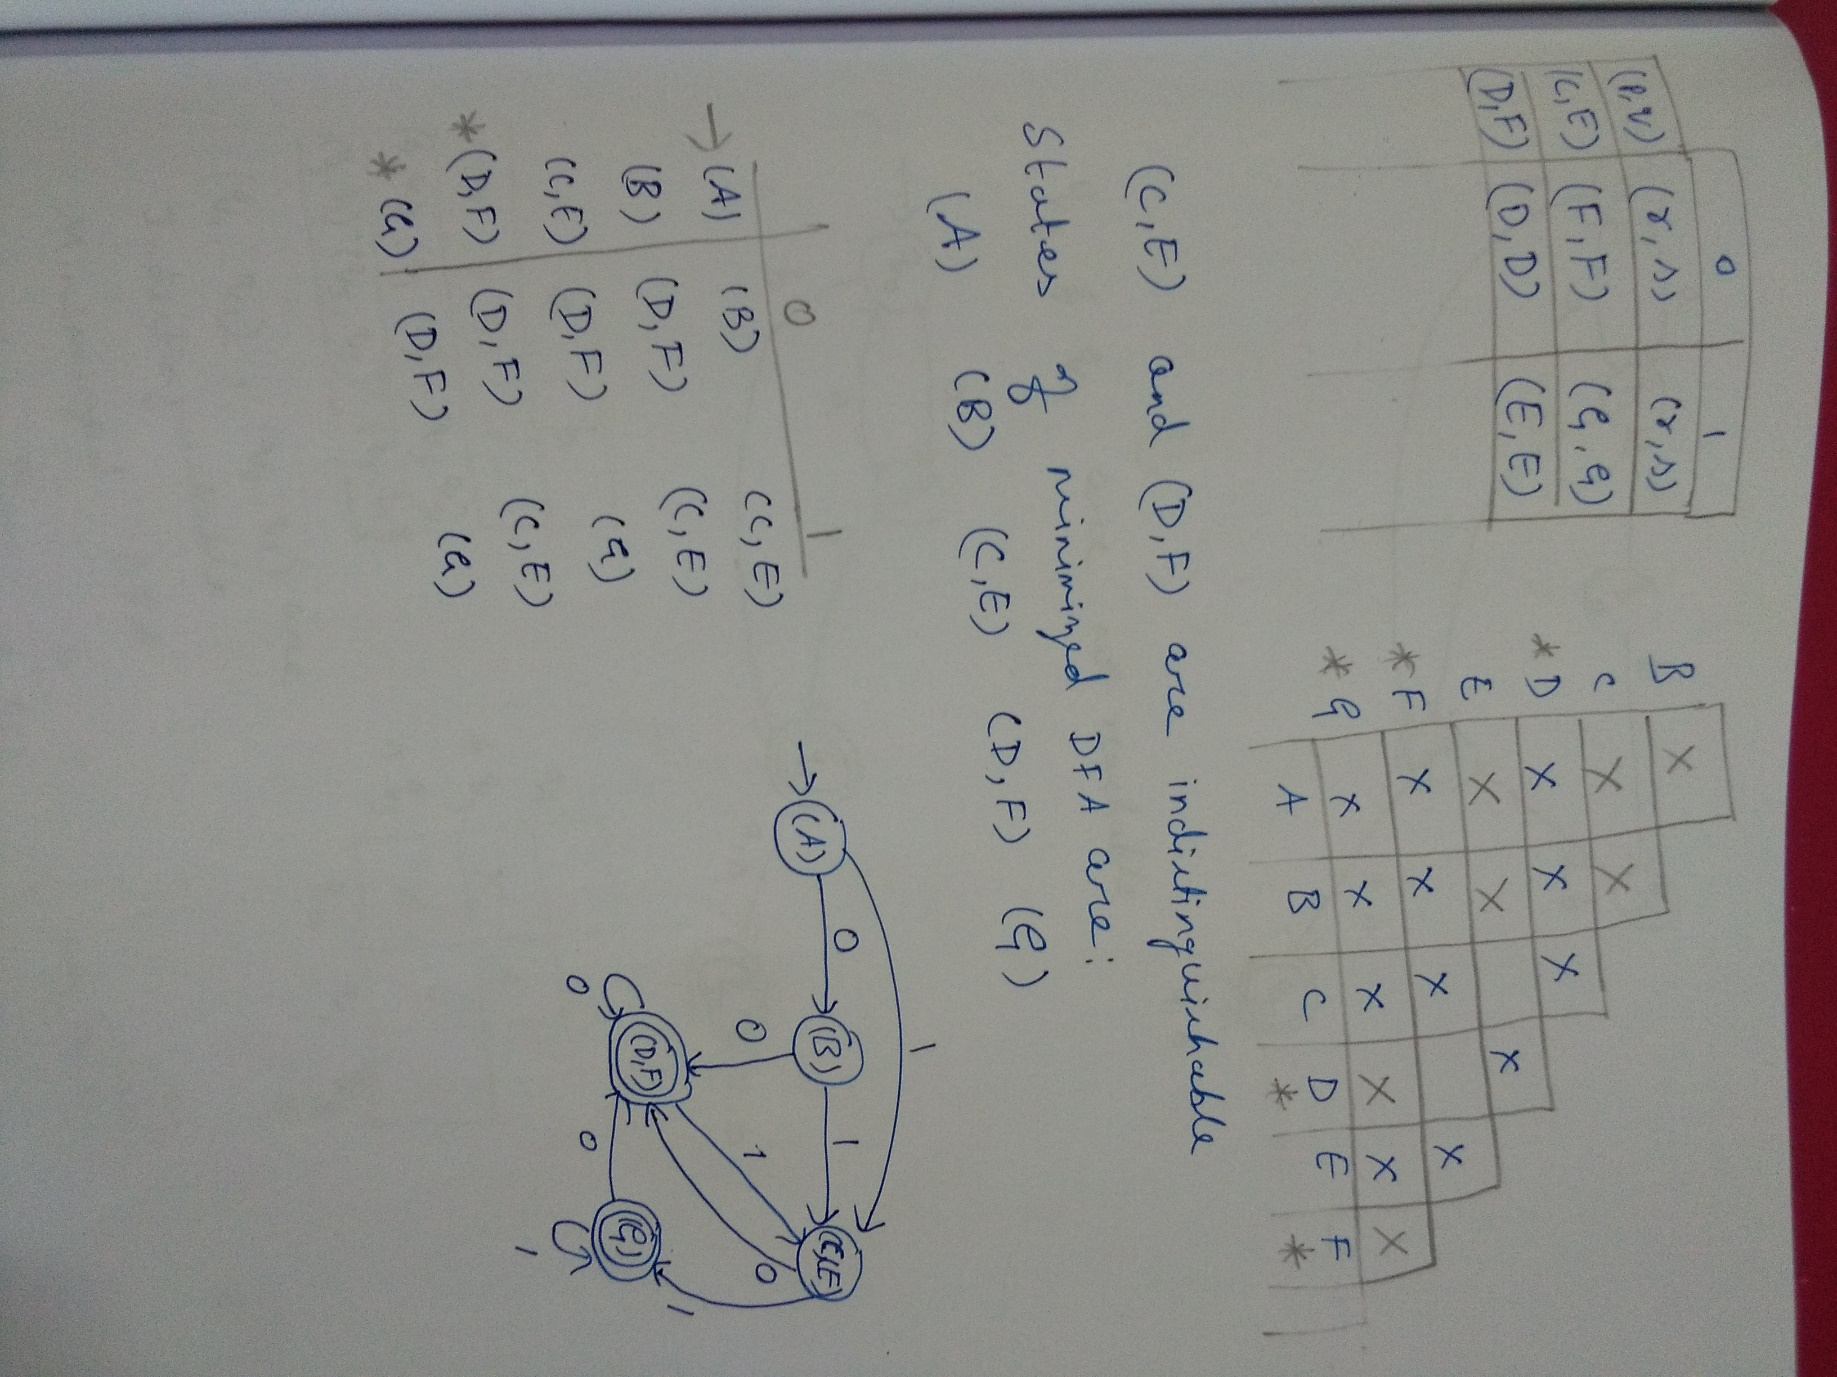 0 1
(p,q) (r,s) (r,s)
(C,E) (F,F) (G,G)
(D,F) (D,D) (E,E)
B X
C X X
* D X X X
E X X X
* F X X X X
* G X X X X X X
A B C D E F
* *
(C,E) and (D,F) are indistinguishable
States of minimized DFA are:
(A) (B) (C,E) (D,F) (G)
0 1
→ (A) (B) (C,E)
(B) (D,F) (C,E)
(C,E) (D,F) (G)
* (D,F) (D,F) (C,E)
* (G) (D,F) (G)
1
→ (A) 0 (B) 1 (C,E)
0 1 0 1
0 (D,F) 0 (G)
1